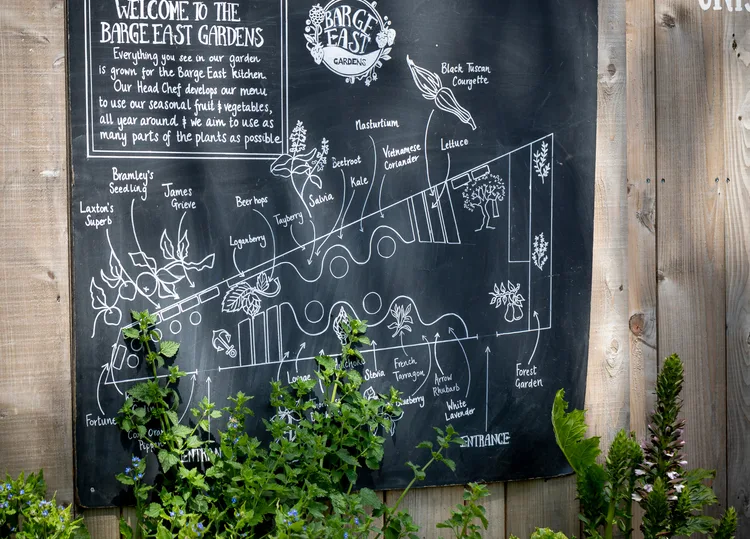 WELCOME TO THE
BARGE EAST GARDENS
Everything you see in our garden
is grown for the Barge East kitchen.
Our Head Chef develops our menu
to use our seasonal fruit & vegetables,
all year around & we aim to use as
many parts of the plants as possible.
BARGE
EAST
GARDENS
Black Tuscan
Courgette
Nasturtium
Vietnamese
Coriander
Lettuce
Beetroot
Kale
Salvia
Tayberry
Beer hops
Loganberry
Bramley's
Seedling
James
Grieve
Laxton's
Superb
Stevia
French
Tarragon
Arrow
Rhubarb
White
Lavender
Forest
Garden
Fortune
ENTRANCE